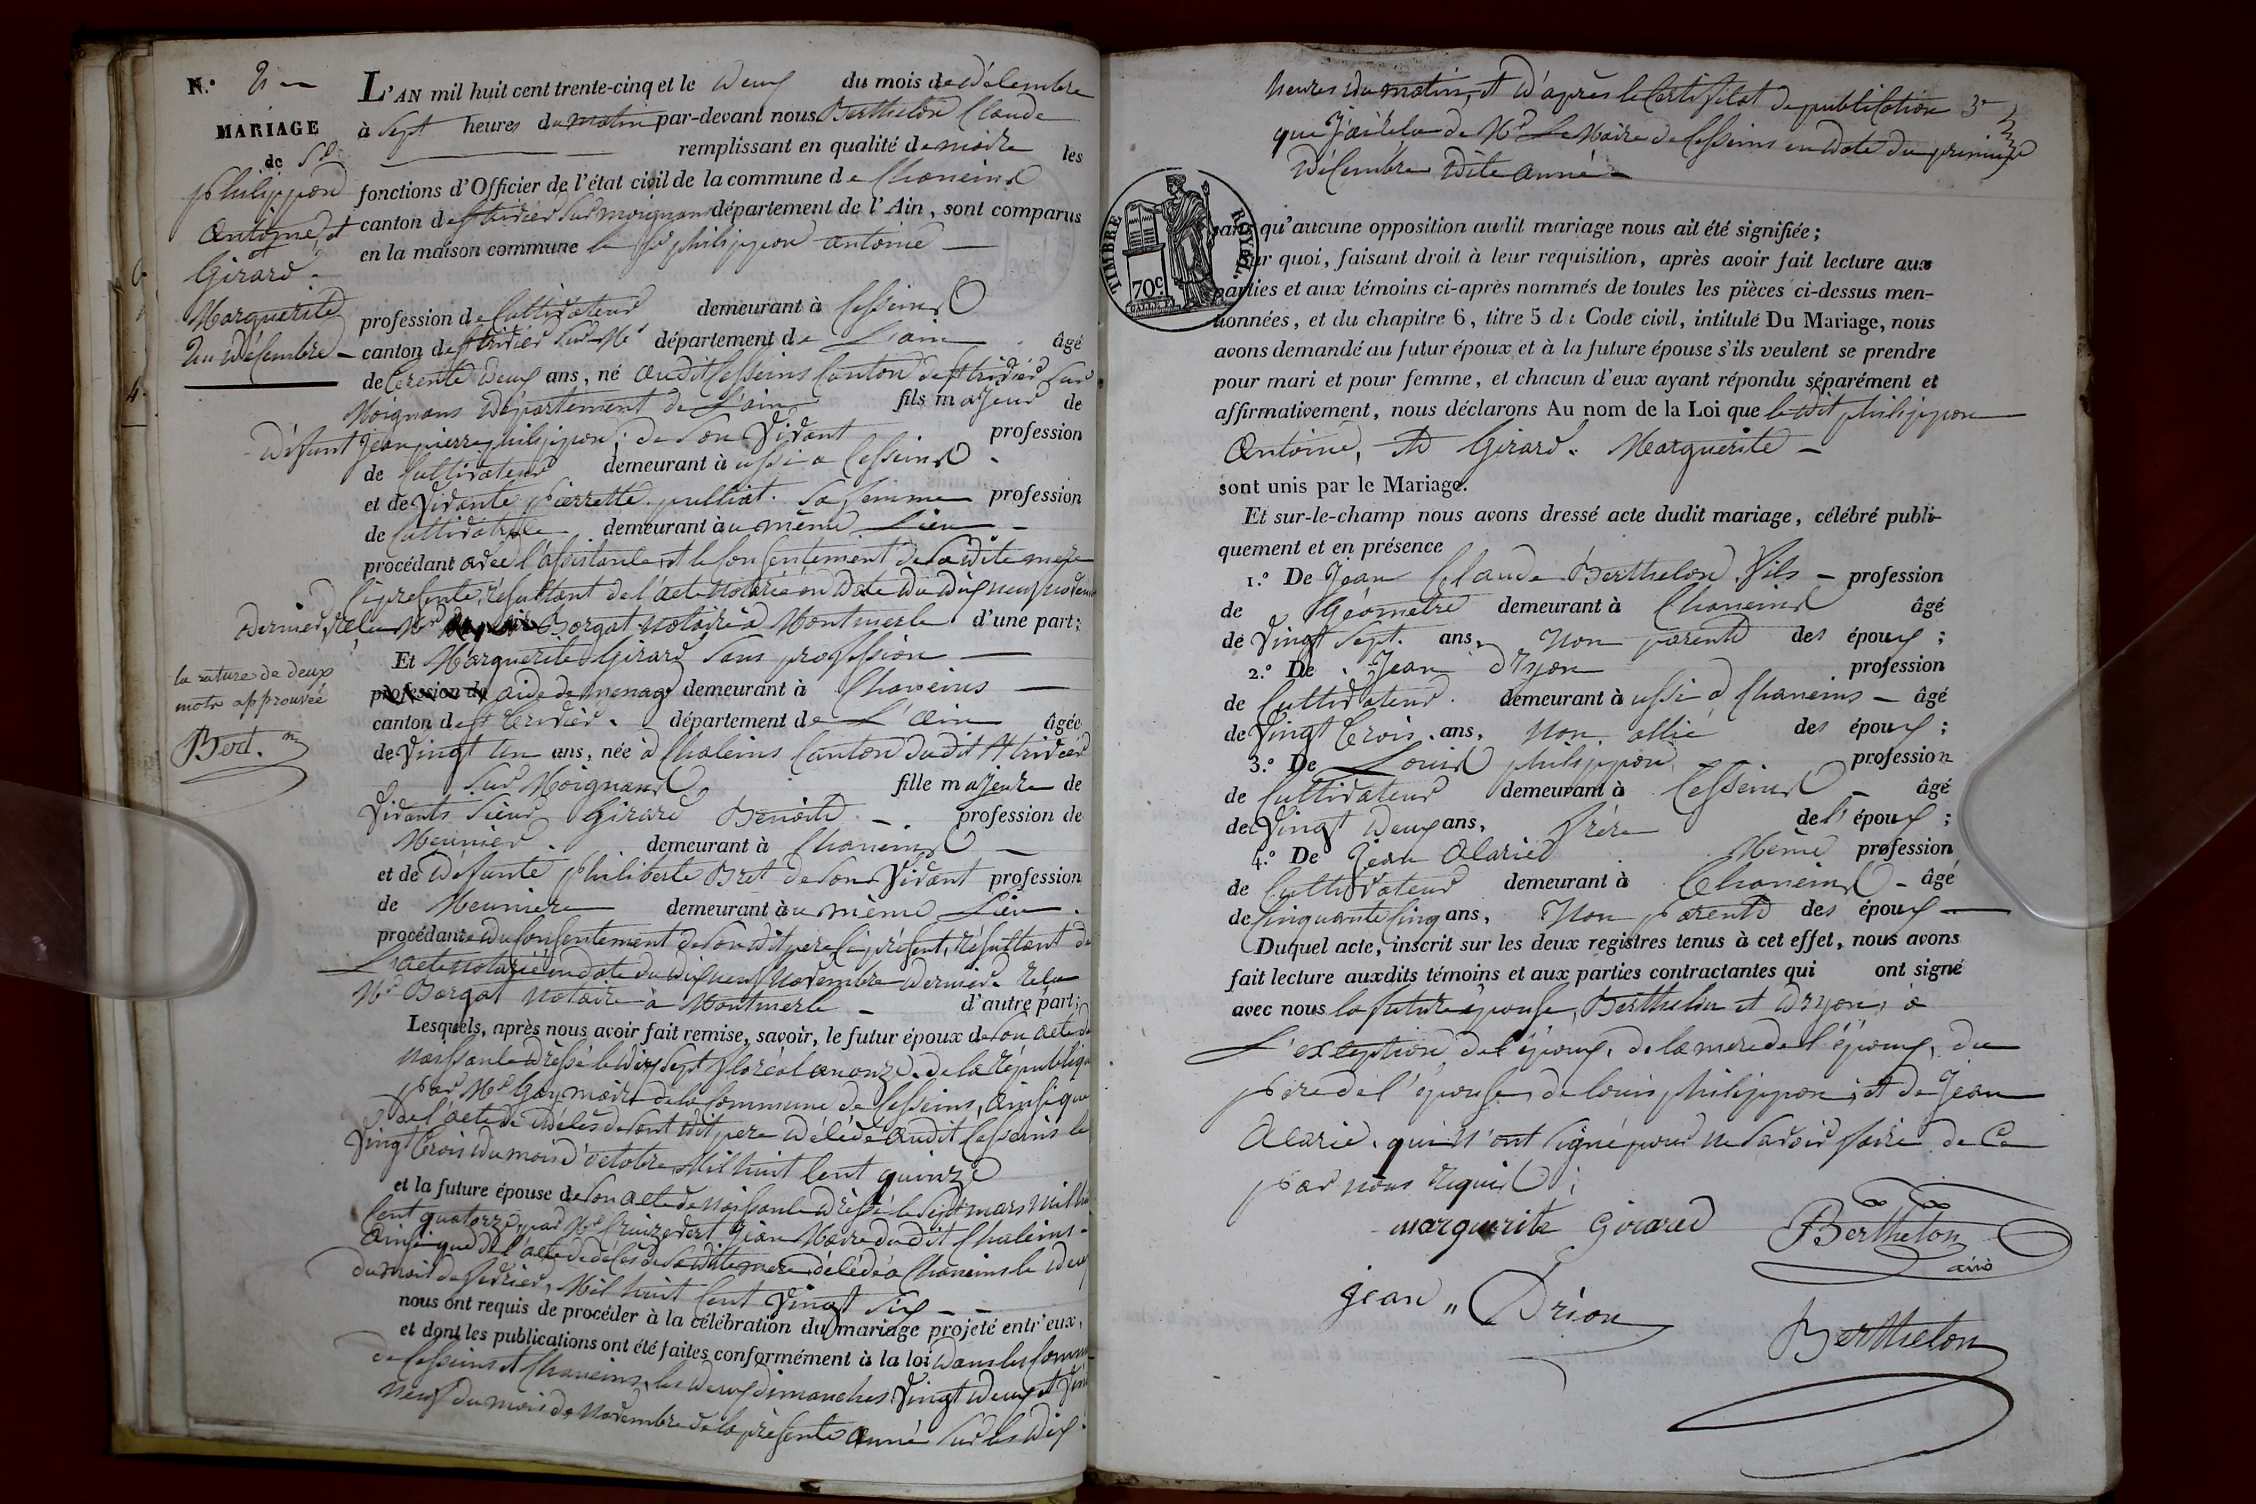 N.°
MARIAGE
de Sr
Philippon
Antoine et
Girard
Marguerite
du 2 décembre
L'AN mil huit cent trente-cinq et le deux du mois de décembre
à Sept heures du matin par-devant nous Berthelon Claude
remplissant en qualité de maire les
fonctions d'Officier de l'état civil de la commune de Chaneins
canton de St trivier sur moignans département de l'Ain, sont comparus
en la maison commune le Sr philippon antoine
profession de Cultivateur demeurant à Cesseins
canton de St trivier sur Ms département de L'ain âgé
de trente deux ans, né audit Cesseins Canton de St trivier sur
Moignans département de L'ain fils majeur de
défunt Jean pierre philippon, de Son Vivant profession
de Cultivateur demeurant à ussi a Cesseins
et de Vivante pierrette pulliat Sa femme profession
de Cultivatrice demeurant àu même Lieu
procédant avec l'assistance et le Consentement de Sa dite mere
Ci présente, résultant de l'acte notarié en date du dix neuf novembre
dernier, relu Mr Borgat notaire à Montmerle d'une part;
Et Marguerite Girard Sans profession
profession de aide de menage demeurant à Chaneins
canton de St trivier département de L'ain âgée
de Vingt un ans, née à Chaleins Canton dudit St trivier
Sur Moignans fille majeure de
Vivants Sieur Girard Benoite profession de
Meunier demeurant à Chaneins
et de défunte philiberte Bret de Son Vivant profession
de Meuniere demeurant àu même Lieu
procédante du Consentement de Son dit pere Ci présent, résultant de
L'acte notarié en date du dix neuf novembre dernier relu
Mr Borgat notaire à Montmerle d'autre part;
Lesquels, après nous avoir fait remise, savoir, le futur époux de Son acte de
naissance dréssé le dix Sept floréal an onze de la république
par Mr Gay maire de la Commune de Cesseins, ainsi que
de l'acte de décès de Son dit pere décédé audit Cesseins le
Vingt trois du mois d'octobre Mil huit Cent quinze
et la future épouse de Son acte de naissance dréssé le Sept mars mil huit
Cent quatorze par Mr Jean Maire dudit Chaleins
ainsi que de l'acte de décès de Sa dite mere décédé à Chaneins le deux
du mois de fevrier, Mil huit Cent Vingt Six
nous ont requis de procéder à la célébration du mariage projeté entr'eux,
et dont les publications ont été faites conformément à la loi dans les Communes
de Cesseins et Chaneins, les deux dimanches Vingt deux et Vingt
neuf du mois de Novembre de la présente année Sur les dix
la rature de deux
mots approuvée
Bert.n
heures du matin, et d'après le Certificat de publication
que J'ai relu de Mr Le Maire de Cesseins en date du premier
décembre dite année
TIMBRE ROYAL.
70c
sans qu'aucune opposition audit mariage nous ait été signifiée;
Sur quoi, faisant droit à leur requisition, après avoir fait lecture aux
parties et aux témoins ci-après nommés de toutes les pièces ci-dessus men-
tionnées, et du chapitre 6, titre 5 du Code civil, intitulé Du Mariage, nous
avons demandé au futur époux et à la future épouse s'ils veulent se prendre
pour mari et pour femme, et chacun d'eux ayant répondu séparément et
affirmativement, nous déclarons Au nom de la Loi que le dit philippon
Antoine, et Girard Marguerite
sont unis par le Mariage.
Et sur-le-champ nous avons dressé acte dudit mariage, célébré publi-
quement et en présence
1.° De Jean Claude Berthelon fils profession
de Géometre demeurant à Chaneins âgé
de Vingt Sept ans, Non parente des époux;
2.° De Jean Dryon profession
de Cultivateur demeurant à ussi à Chaneins âgé
de Vingt trois ans, Non allié des époux;
3.° De Louis philippon profession
de Cultivateur demeurant à Cesseins âgé
de Vingt deux ans, frère de l'époux;
4.° De Jean Alarie Même profession
de Cultivateur demeurant à Chaneins âgé
de Cinquante Cinq ans, Non parente des époux
Duquel acte, inscrit sur les deux registres tenus à cet effet, nous avons
fait lecture auxdits témoins et aux parties contractantes qui ont signé
avec nous la future épouse, Berthelon et Dryon, à
L'exception de l'époux, de la mere de l'époux, du
pere de l'épouse, de louis philippon, et de Jean
Alarie qui n'ont Signé pour ne Savoir faire de Ce
par nous requis;
marguerite Girard
Berthelon
jean Drion
Berthelon